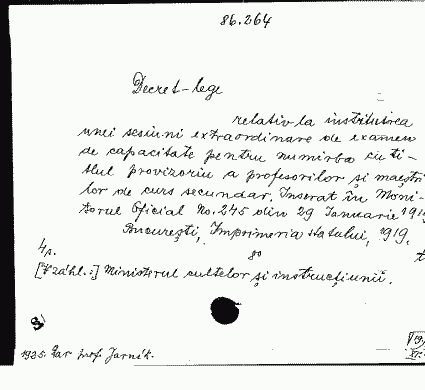 86.264
Decret-lege
relativ la instituirea
unei sesiuni extraordinare de examen
de capacitate pentru numirea cu ti-
tlul provizoriu a profesorilor și maeștri
lor de curs secundar. Inserat în Moni-
torul Oficial No. 245 din 29 Ianuarie 1919
București, Imprimeria statului, 1919.
4 p. 8º
[V záhl.:] Ministerul cultelor și instrucțiunii.
1935. Dar prof. Jarník.